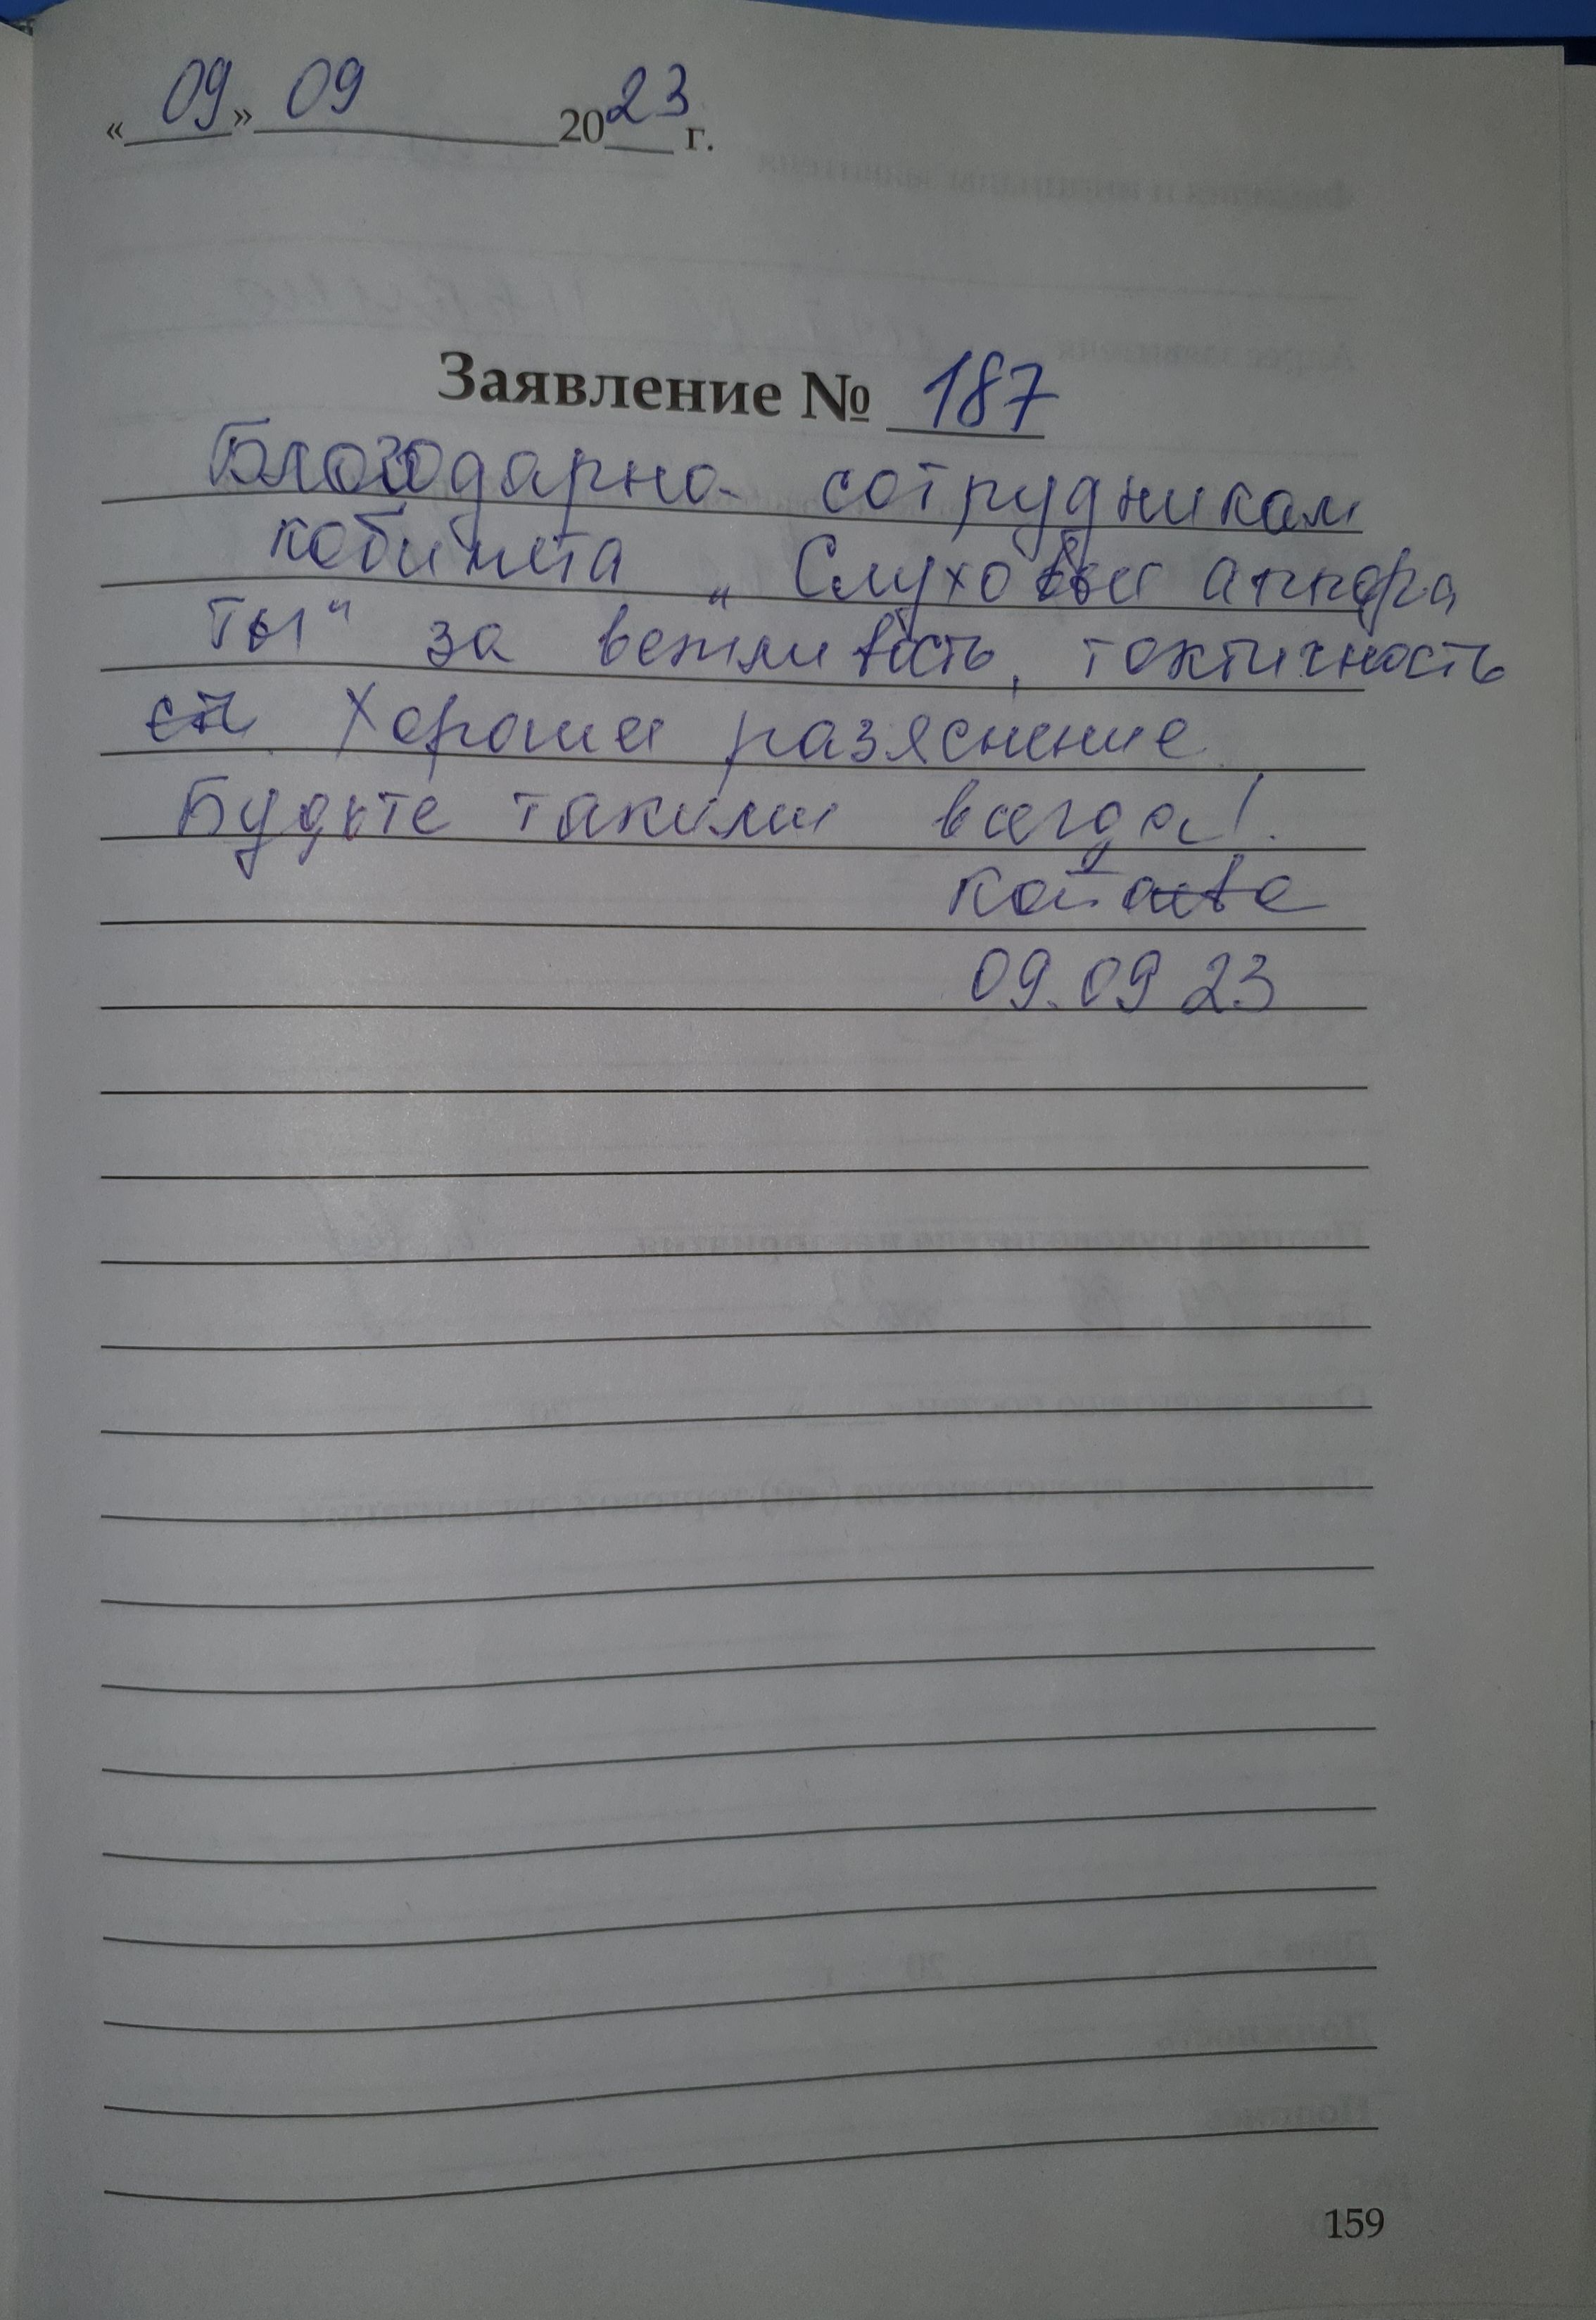 « 09 » 09 2023 г.
Заявление № 187
Благодарна сотрудникам
кабинета „Слуховые аппара
ты" за вежливость, тактичность
Хорошее разяснение
Будьте такими всегда!
09.09 23
159